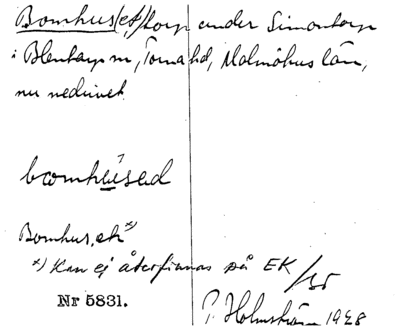 Bomhus(et), torp under Simontorp
i Blentarps sn, Torna hd, Malmöhus län,
nu nedrivet
bomhúsəd
Bomhus, et x)
x) Kan ej återfinnas på EK
Nr 5831.
P. Holmström 1928